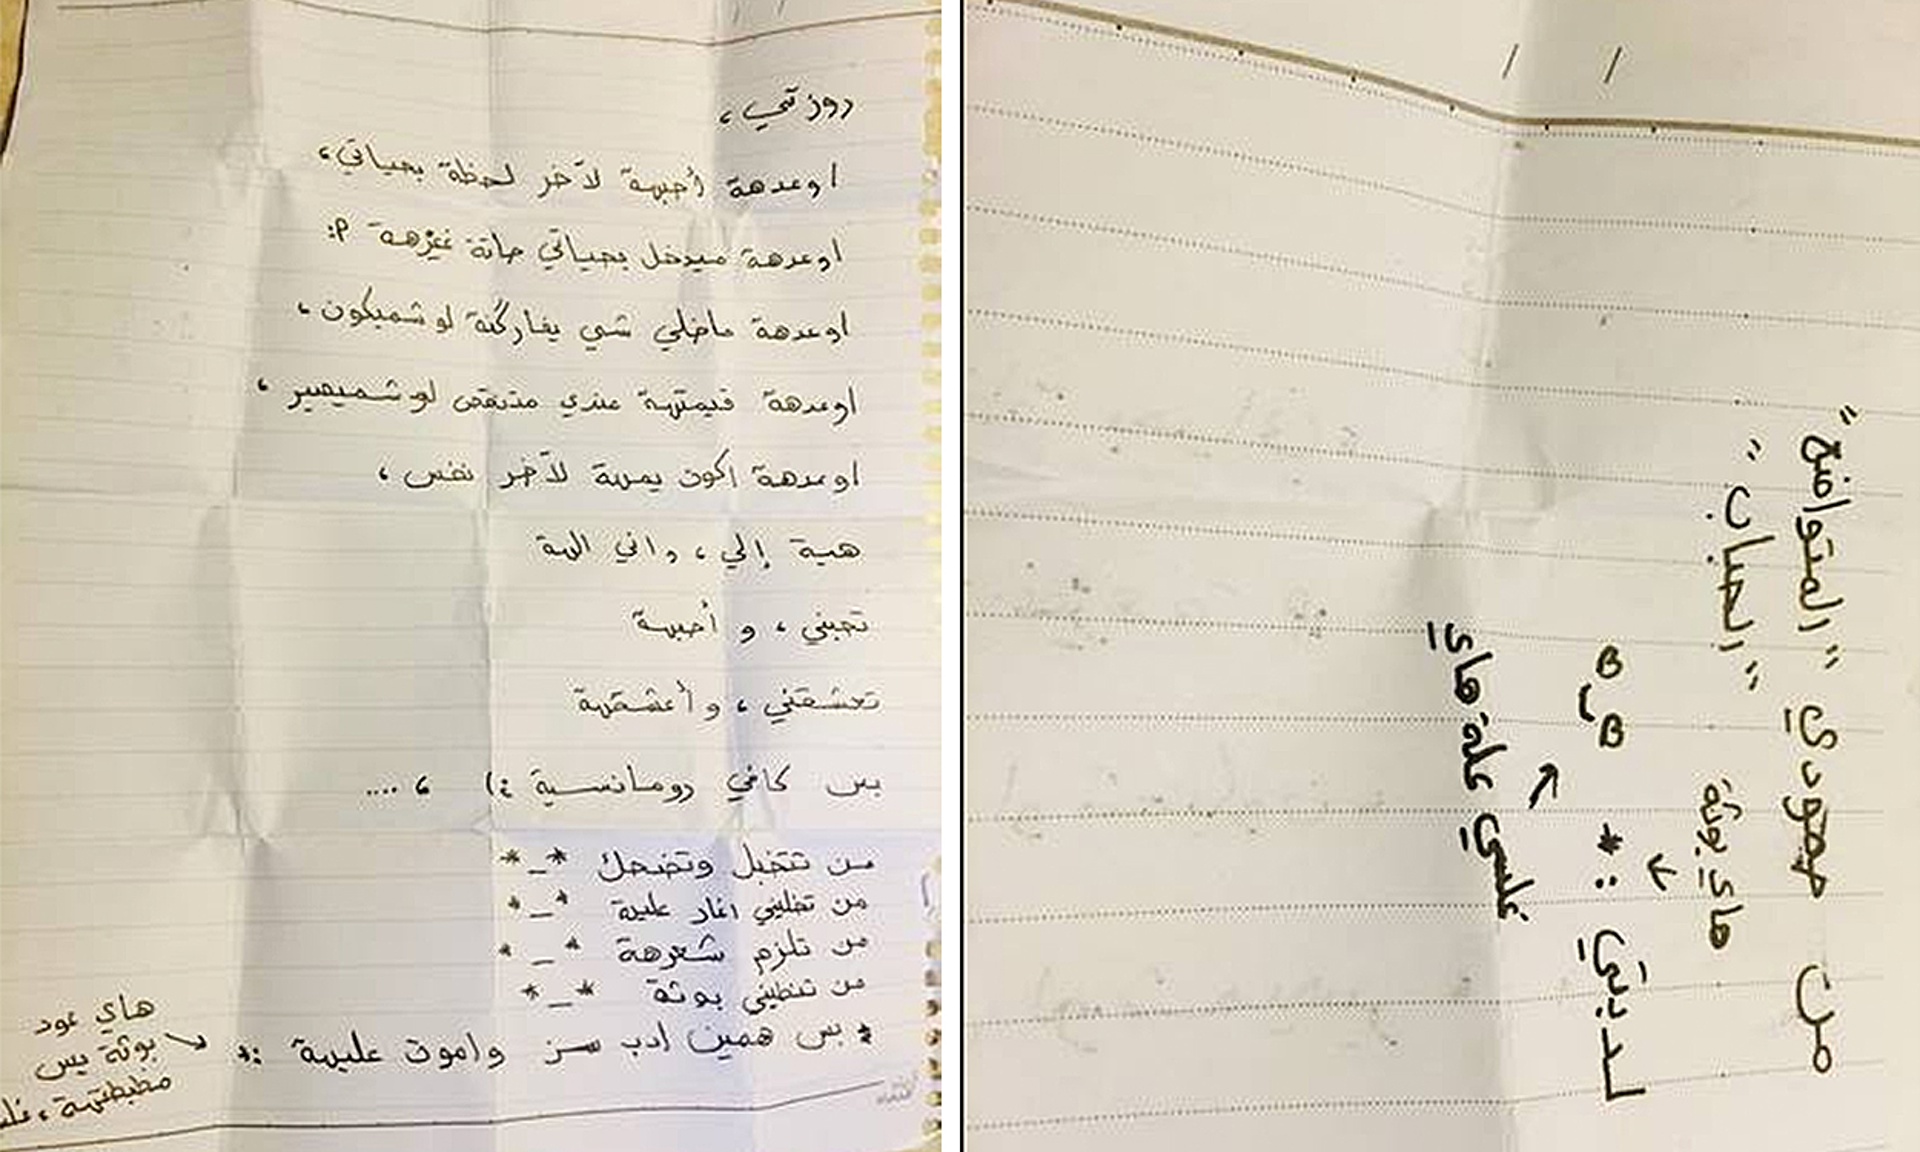 روزتي،
اوعدهة أحبهة لآخر لحظة بحياتي،
اوعدهة ميدخل بحياتي حاتة غيرهة :P
اوعدهة ماخلي شي يفاركنة لو شميكون،
اوعدهة قيمتهة عندي متنقص لو شميصير،
اوعدهة اكون يمهة لآخر نفس،
هية إلي، واني الهة
تحبني، و أحبهة
تعشقني، و أعشقهة
بس كافي رومانسية :) ، ....
من تتخبل وتضحك *_*
من تخليني اغار علية *_*
من تلزم شعرهة *_*
من تنطيني بوثة *_*
* بس همين ادب سز واموت عليهة :*
هاي عود
بوثة بس
مطبطتهة،
من حمودي "المتواضع"
"الحباب"
هاي بوثة
لدبتي :* B ں B
غلسي علة هاي